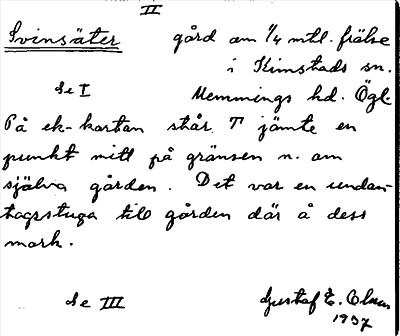 II
Svinsäter gård om 1/4 mtl. frälse
i Kimstads sn.
Se I Memmings hd. Ögl.
På ek-kartan står T jämte en
punkt mitt på gränsen n. om
själva gården. Det var en undan-
tagsstuga till gården där å dess
mark.
Se III Gustaf E. Olsson
1937